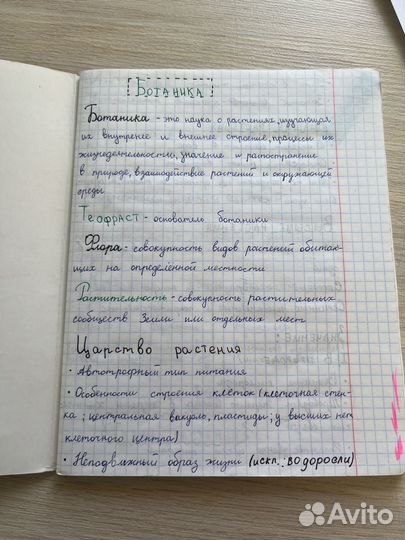 Ботаника
Ботаника - это наука о растениях, изучающая
их внутренее и внешнее строение, процессы их
жизнедеятельности, значение и распостранение
в природе, взаимодействие растений и окружающей
среды
Теофраст - основатель ботаники
Флора - совокупность видов растений обитаю-
щих на определённой местности
Растительность - совокупность растительных
сообществ Земли или отдельных мест
Царство растения
• Автотрофный тип питания
• Особенности строения клеток (клеточная стен-
ка; центральная вакуоль, пластиды; у высших нет
клеточного центра)
• Неподвижный образ жизни (искл.: водоросли)
Avito